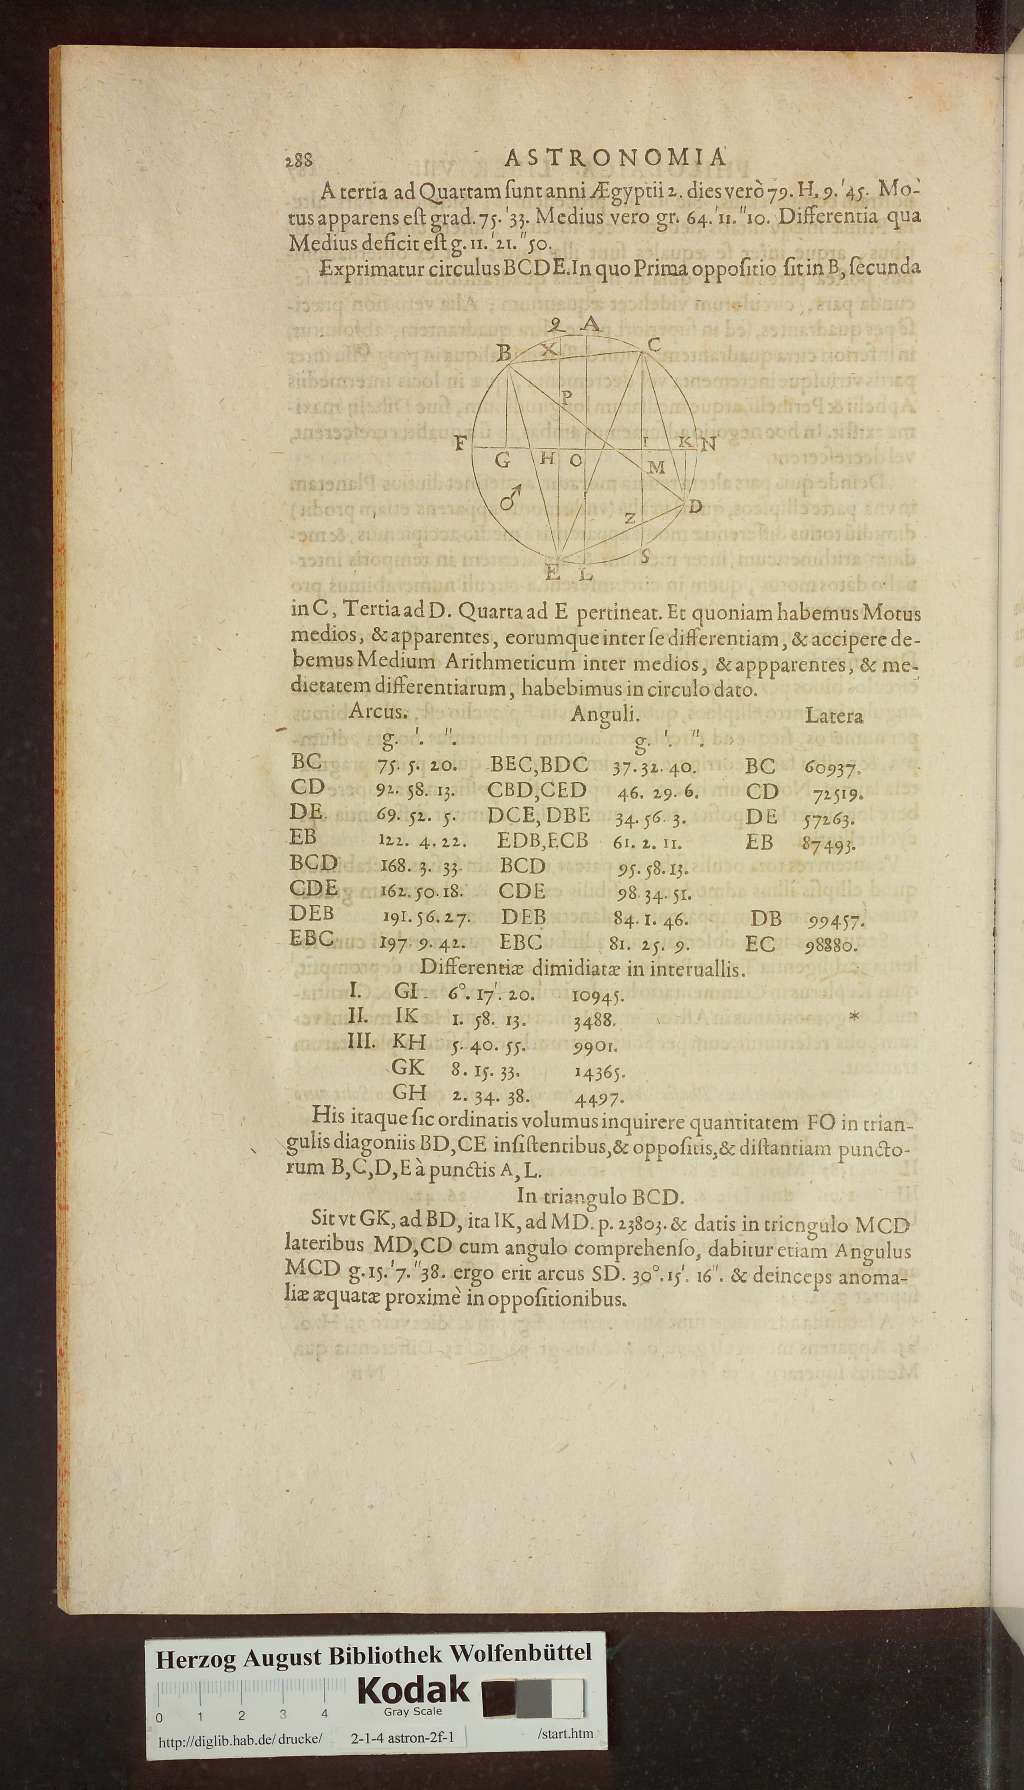 288 ASTRONOMIA
A tertia ad Quartam sunt anni Ægyptii 2. dies verò 79. H. 9. '45. Mo-
tus apparens est grad. 75. '33. Medius vero gr. 64. '11. "10. Differentia qua
Medius deficit est g. 11. '21. "50.
Exprimatur circulus BCDE. In quo Prima oppositio sit in B, secunda
9 A
B X C
P
F G H O I K N
M
♂ Z D
E L S
in C, Tertia ad D. Quarta ad E pertineat. Et quoniam habemus Motus
medios, & apparentes, eorumque inter se differentiam, & accipere de-
bemus Medium Arithmeticum inter medios, & appparentes, & me-
dietatem differentiarum, habebimus in circulo dato.
Arcus. Anguli. Latera
g. '. ". g. '. ".
BC 75. 5. 20. BEC, BDC 37. 32. 40. BC 60937.
CD 92. 58. 13. CBD, CED 46. 29. 6. CD 72519.
DE 69. 52. 5. DCE, DBE 34. 56. 3. DE 57263.
EB 122. 4. 22. EDB, ECB 61. 2. 11. EB 87493.
BCD 168. 3. 33. BCD 95. 58. 13.
CDE 162. 50. 18. CDE 98. 34. 51.
DEB 191. 56. 27. DEB 84. 1. 46. DB 99457.
EBC 197. 9. 42. EBC 81. 25. 9. EC 98880.
Differentiæ dimidiatæ in interuallis.
I. GI 6°. 17'. 20. 10945.
II. IK 1. 58. 13. 3488. *
III. KH 5. 40. 55. 9901.
GK 8. 15. 33. 14365.
GH 2. 34. 38. 4497.
His itaque sic ordinatis volumus inquirere quantitatem FO in trian-
gulis diagoniis BD, CE insistentibus, & oppositis, & distantiam puncto-
rum B, C, D, E à punctis A, L.
In triangulo BCD.
Sit vt GK, ad BD, ita IK, ad MD. p. 23803. & datis in tricngulo MCD
lateribus MD, CD cum angulo comprehenso, dabitur etiam Angulus
MCD g. 15. '7. "38. ergo erit arcus SD. 30°. 15'. 16". & deinceps anoma-
liæ æquatæ proximè in oppositionibus.
Herzog August Bibliothek Wolfenbüttel
Kodak
Gray Scale
0 1 2 3 4
http://diglib.hab.de/drucke/ 2-1-4 astron-2f-1 /start.htm